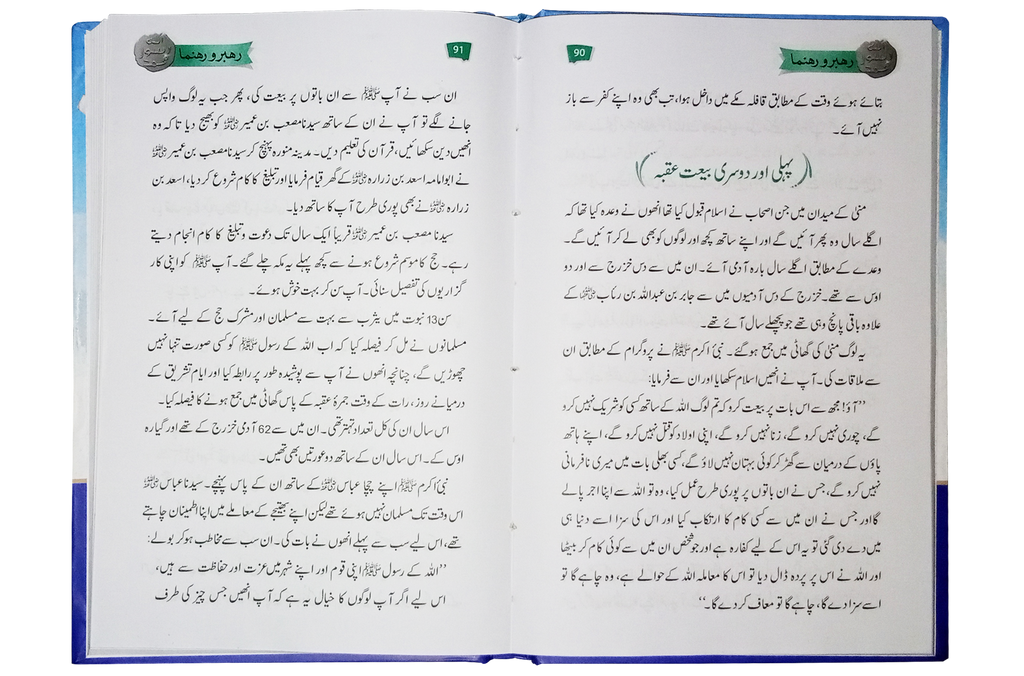 رهبر و رهنما
90
بتائے ہوئے وقت کے مطابق قافلہ مکے میں داخل ہوا، تب بھی وہ اپنے کفر سے باز
نہیں آئے۔
پہلی اور دوسری بیعت عقبہ
منیٰ کے میدان میں جن اصحاب نے اسلام قبول کیا تھا انھوں نے وعدہ کیا تھا کہ
اگلے سال وہ پھر آئیں گے اور اپنے ساتھ کچھ اور لوگوں کو بھی لے کر آئیں گے۔
وعدے کے مطابق اگلے سال بارہ آدمی آئے۔ ان میں سے دس خزرج سے اور دو
اوس سے تھے۔ خزرج کے دس آدمیوں میں سے جابر بن عبداللہ بن رئاب رضی اللہ عنہ کے
علاوہ باقی پانچ وہی تھے جو پچھلے سال آئے تھے۔
یہ لوگ منیٰ کی گھاٹی میں جمع ہوگئے۔ نبیٔ اکرم ﷺ نے پروگرام کے مطابق ان
سے ملاقات کی۔ آپ نے انھیں اسلام سکھایا اور ان سے فرمایا:
”آؤ! مجھ سے اس بات پر بیعت کرو کہ تم لوگ اللہ کے ساتھ کسی کو شریک نہیں کرو
گے، چوری نہیں کرو گے، زنا نہیں کرو گے، اپنی اولاد کو قتل نہیں کرو گے، اپنے ہاتھ
پاؤں کے درمیان سے گھڑ کر کوئی بہتان نہیں لاؤ گے، کسی بھلی بات میں میری نافرمانی
نہیں کرو گے، جس نے ان باتوں پر پوری طرح عمل کیا، وہ تو اللہ سے اپنا اجر پالے
گا اور جس نے ان میں سے کسی کام کا ارتکاب کیا اور اس کی سزا اسے دنیا ہی
میں دے دی گئی تو یہ اس کے لیے کفارہ ہے اور جو شخص ان میں سے کوئی کام کر بیٹھا
اور اللہ نے اس پر پردہ ڈال دیا تو اس کا معاملہ اللہ کے حوالے ہے، وہ چاہے گا تو
اسے سزا دے گا، چاہے گا تو معاف کر دے گا۔“
رهبر و رهنما
91
ان سب نے آپ ﷺ سے ان باتوں پر بیعت کی، پھر جب یہ لوگ واپس
جانے لگے تو آپ نے ان کے ساتھ سیدنا مصعب بن عمیر رضی اللہ عنہ کو بھیج دیا تاکہ وہ
انھیں دین سکھائیں، قرآن کی تعلیم دیں۔ مدینہ منورہ پہنچ کر سیدنا مصعب بن عمیر رضی اللہ عنہ
نے ابوامامہ اسعد بن زرارہ رضی اللہ عنہ کے گھر قیام فرمایا اور تبلیغ کا کام شروع کر دیا، اسعد بن
زرارہ رضی اللہ عنہ نے بھی پوری طرح آپ کا ساتھ دیا۔
سیدنا مصعب بن عمیر رضی اللہ عنہ قریباً ایک سال تک دعوت و تبلیغ کا کام انجام دیتے
رہے۔ حج کا موسم شروع ہونے سے کچھ پہلے یہ مکہ چلے گئے۔ آپ ﷺ کو اپنی کار
گزاریوں کی تفصیل سنائی۔ آپ سن کر بہت خوش ہوئے۔
سن 13 نبوت میں یثرب سے بہت سے مسلمان اور مشرک حج کے لیے آئے۔
مسلمانوں نے مل کر فیصلہ کیا کہ اب اللہ کے رسول ﷺ کو کسی صورت تنہا نہیں
چھوڑیں گے، چنانچہ انھوں نے آپ سے پوشیدہ طور پر رابطہ کیا اور ایام تشریق کے
درمیانے روز، رات کے وقت جمرۂ عقبہ کے پاس گھاٹی میں جمع ہونے کا فیصلہ کیا۔
اس سال ان کی کل تعداد تہتر تھی۔ ان میں سے 62 آدمی خزرج کے تھے اور گیارہ
اوس کے۔ اس سال ان کے ساتھ دو عورتیں بھی تھیں۔
نبیٔ اکرم ﷺ اپنے چچا عباس رضی اللہ عنہ کے ساتھ ان کے پاس پہنچے۔ سیدنا عباس رضی اللہ عنہ
اس وقت تک مسلمان نہیں ہوئے تھے لیکن اپنے بھتیجے کے معاملے میں اپنا اطمینان چاہتے
تھے، اس لیے سب سے پہلے انھوں نے بات کی۔ ان سب سے مخاطب ہو کر بولے:
”اللہ کے رسول ﷺ اپنی قوم اور اپنے شہر میں عزت اور حفاظت سے ہیں،
اس لیے اگر آپ لوگوں کا خیال یہ ہے کہ آپ انھیں جس چیز کی طرف